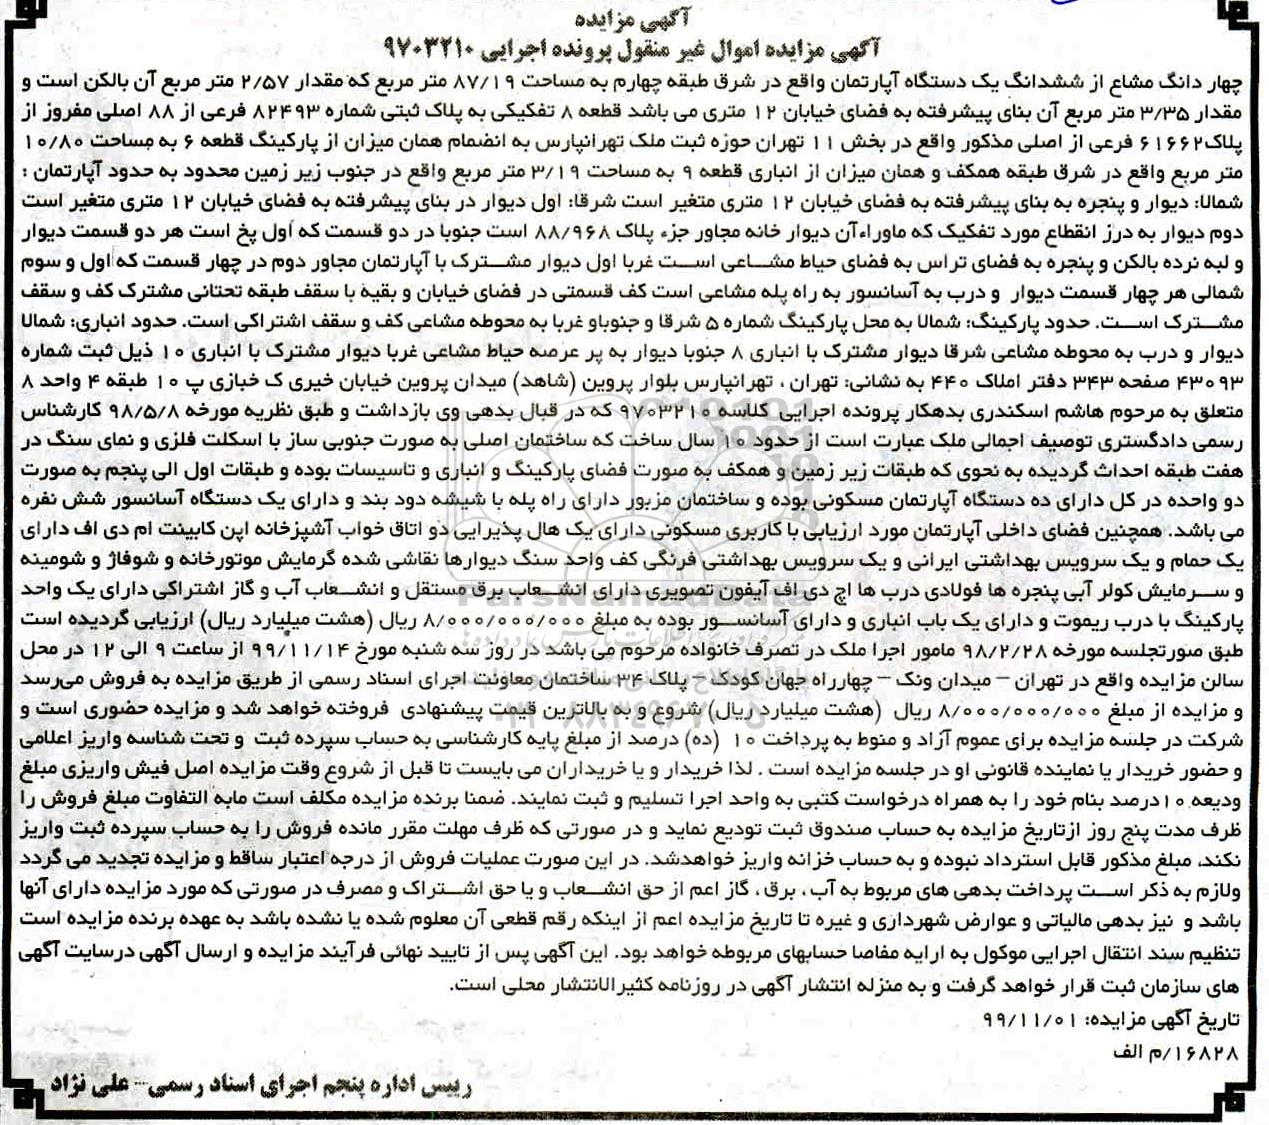 آگهی مزایده
آگهی مزایده اموال غیر منقول پرونده اجرایی ۹۷۰۳۲۱۰
چهار دانگ مشاع از ششدانگ یک دستگاه آپارتمان واقع در شرق طبقه چهارم به مساحت ۸۷/۱۹ متر مربع که مقدار ۲/۵۷ متر مربع آن بالکن است و
مقدار ۳/۳۵ متر مربع آن بنای پیشرفته به فضای خیابان ۱۲ متری می باشد قطعه ۸ تفکیکی به پلاک ثبتی شماره ۸۲۴۹۳ فرعی از ۸۸ اصلی مفروز از
پلاک۶۱۶۶۲ فرعی از اصلی مذکور واقع در بخش ۱۱ تهران حوزه ثبت ملک تهرانپارس به انضمام همان میزان از پارکینگ قطعه ۶ به مساحت ۱۰/۸۰
متر مربع واقع در شرق طبقه همکف و همان میزان از انباری قطعه ۹ به مساحت ۳/۱۹ متر مربع واقع در جنوب زیر زمین محدود به حدود آپارتمان :
شمالا: دیوار و پنجره به بنای پیشرفته به فضای خیابان ۱۲ متری متغیر است شرقا: اول دیوار در بنای پیشرفته به فضای خیابان ۱۲ متری متغیر است
دوم دیوار به درز انقطاع مورد تفکیک که ماوراءآن دیوار خانه مجاور جزء پلاک ۸۸/۹۶۸ است جنوبا در دو قسمت که اول پخ است هر دو قسمت دیوار
و لبه نرده بالکن و پنجره به فضای تراس به فضای حیاط مشاعی است غربا اول دیوار مشترک با آپارتمان مجاور دوم در چهار قسمت که اول و سوم
شمالی هر چهار قسمت دیوار و درب به آسانسور به راه پله مشاعی است کف قسمتی در فضای خیابان و بقیه با سقف طبقه تحتانی مشترک کف و سقف
مشترک است. حدود پارکینگ: شمالا به محل پارکینگ شماره ۵ شرقا و جنوباو غربا به محوطه مشاعی کف و سقف اشتراکی است. حدود انباری: شمالا
دیوار و درب به محوطه مشاعی شرقا دیوار مشترک با انباری ۸ جنوبا دیوار به پر عرصه حیاط مشاعی غربا دیوار مشترک با انباری ۱۰ ذیل ثبت شماره
۴۳۰۹۳ صفحه ۳۴۳ دفتر املاک ۴۴۰ به نشانی: تهران ، تهرانپارس بلوار پروین (شاهد) میدان پروین خیابان خیری ک خبازی پ ۱۰ طبقه ۴ واحد ۸
متعلق به مرحوم هاشم اسکندری بدهکار پرونده اجرایی کلاسه ۹۷۰۳۲۱۰ که در قبال بدهی وی بازداشت و طبق نظریه مورخه ۹۸/۵/۸ کارشناس
رسمی دادگستری توصیف اجمالی ملک عبارت است از حدود ۱۰ سال ساخت که ساختمان اصلی به صورت جنوبی ساز با اسکلت فلزی و نمای سنگ در
هفت طبقه احداث گردیده به نحوی که طبقات زیر زمین و همکف به صورت فضای پارکینگ و انباری و تاسیسات بوده و طبقات اول الی پنجم به صورت
دو واحده در کل دارای ده دستگاه آپارتمان مسکونی بوده و ساختمان مزبور دارای راه پله با شیشه دود بند و دارای یک دستگاه آسانسور شش نفره
می باشد. همچنین فضای داخلی آپارتمان مورد ارزیابی با کاربری مسکونی دارای یک هال پذیرایی دو اتاق خواب آشپزخانه اپن کابینت ام دی اف دارای
یک حمام و یک سرویس بهداشتی ایرانی و یک سرویس بهداشتی فرنگی کف واحد سنگ دیوارها نقاشی شده گرمایش موتورخانه و شوفاژ و شومینه
و سرمایش کولر آبی پنجره ها فولادی درب ها اچ دی اف آیفون تصویری دارای انشعاب برق مستقل و انشعاب آب و گاز اشتراکی دارای یک واحد
پارکینگ با درب ریموت و دارای یک باب انباری و دارای آسانسور بوده به مبلغ ۸/۰۰۰/۰۰۰/۰۰۰ ریال (هشت میلیارد ریال) ارزیابی گردیده است
طبق صورتجلسه مورخه ۹۸/۲/۲۸ مامور اجرا ملک در تصرف خانواده مرحوم می باشد در روز سه شنبه مورخ ۹۹/۱۱/۱۴ از ساعت ۹ الی ۱۲ در محل
سالن مزایده واقع در تهران – میدان ونک – چهارراه جهان کودک – پلاک ۳۴ ساختمان معاونت اجرای اسناد رسمی از طریق مزایده به فروش می‌رسد
و مزایده از مبلغ ۸/۰۰۰/۰۰۰/۰۰۰ ریال (هشت میلیارد ریال) شروع و به بالاترین قیمت پیشنهادی فروخته خواهد شد و مزایده حضوری است و
شرکت در جلسه مزایده برای عموم آزاد و منوط به پرداخت ۱۰ (ده) درصد از مبلغ پایه کارشناسی به حساب سپرده ثبت و تحت شناسه واریز اعلامی
و حضور خریدار یا نماینده قانونی او در جلسه مزایده است . لذا خریدار و یا خریداران می بایست تا قبل از شروع وقت مزایده اصل فیش واریزی مبلغ
ودیعه ۱۰درصد بنام خود را به همراه درخواست کتبی به واحد اجرا تسلیم و ثبت نمایند. ضمنا برنده مزایده مکلف است مابه التفاوت مبلغ فروش را
ظرف مدت پنج روز ازتاریخ مزایده به حساب صندوق ثبت تودیع نماید و در صورتی که ظرف مهلت مقرر مانده فروش را به حساب سپرده ثبت واریز
نکند، مبلغ مذکور قابل استرداد نبوده و به حساب خزانه واریز خواهدشد. در این صورت عملیات فروش از درجه اعتبار ساقط و مزایده تجدید می گردد
ولازم به ذکر است پرداخت بدهی های مربوط به آب ، برق ، گاز اعم از حق انشعاب و یا حق اشتراک و مصرف در صورتی که مورد مزایده دارای آنها
باشد و نیز بدهی مالیاتی و عوارض شهرداری و غیره تا تاریخ مزایده اعم از اینکه رقم قطعی آن معلوم شده یا نشده باشد به عهده برنده مزایده است
تنظیم سند انتقال اجرایی موکول به ارایه مفاصا حسابهای مربوطه خواهد بود. این آگهی پس از تایید نهائی فرآیند مزایده و ارسال آگهی درسایت آگهی
های سازمان ثبت قرار خواهد گرفت و به منزله انتشار آگهی در روزنامه کثیرالانتشار محلی است.
تاریخ آگهی مزایده: ۹۹/۱۱/۰۱
۱۶۸۲۸/م الف
رییس اداره پنجم اجرای اسناد رسمی– علی نژاد